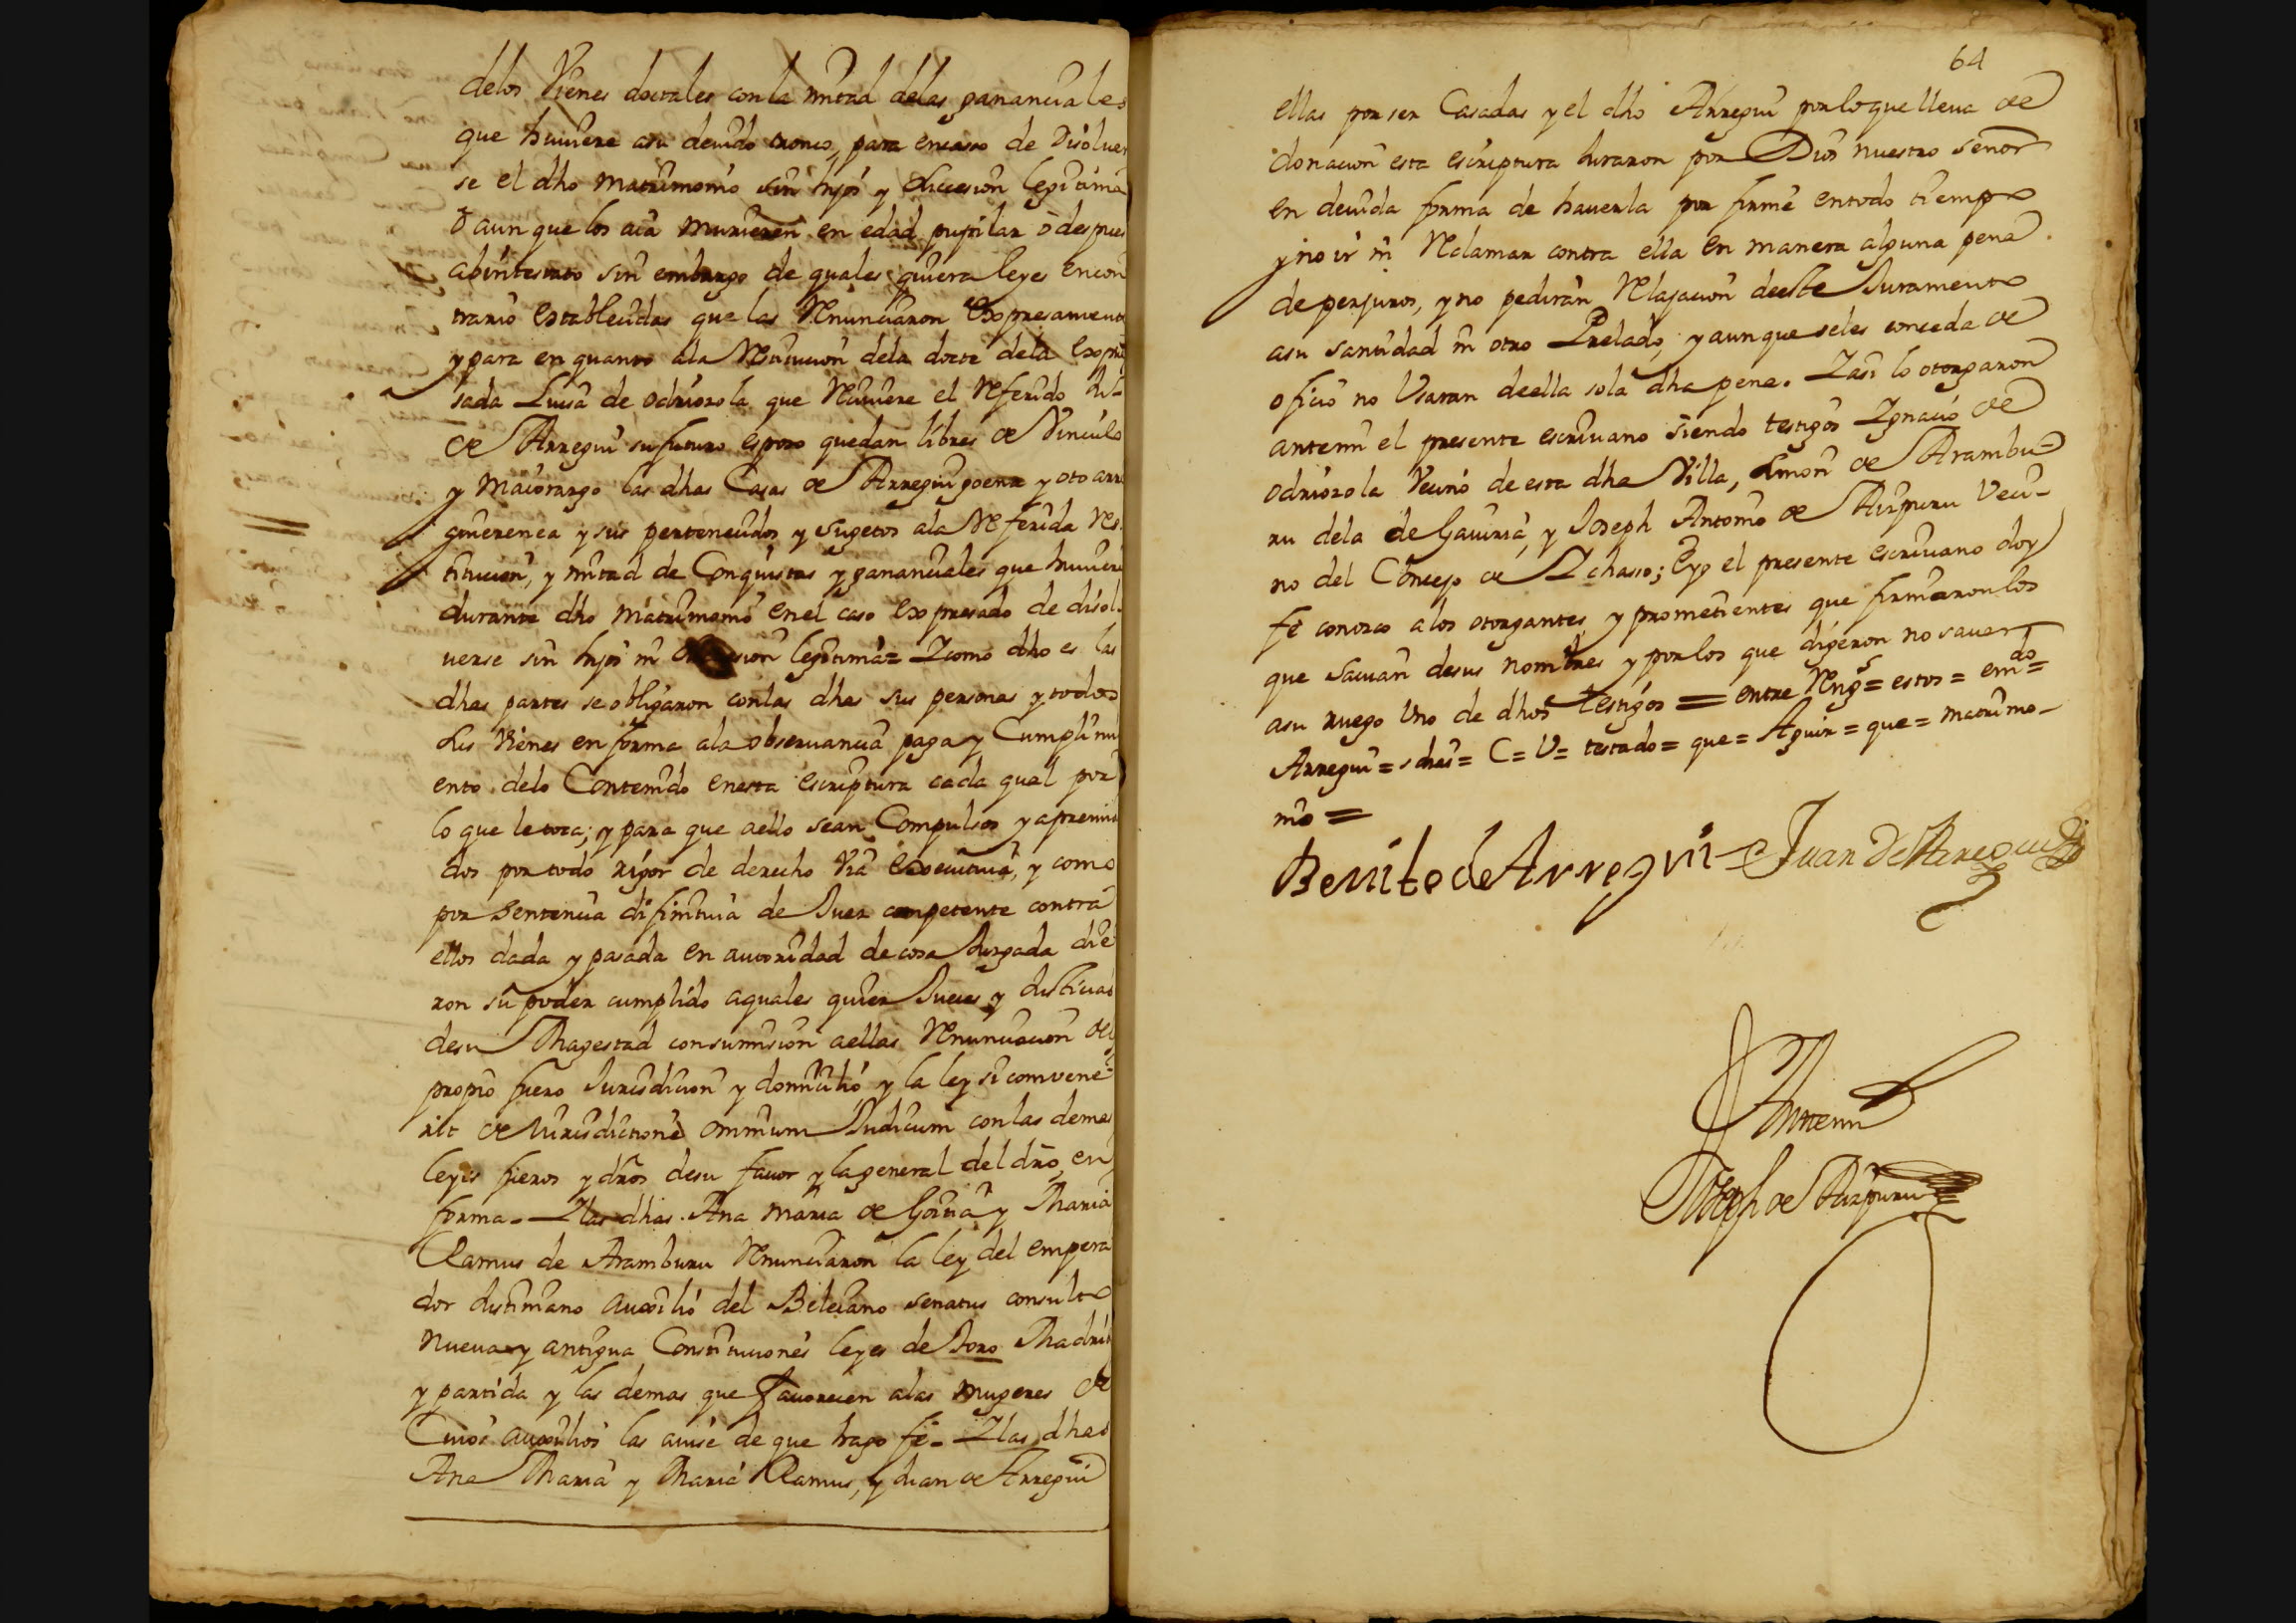 delos Vienes dotales con la mitad delas gananciales
que huuiere asu deuido tronco, para encaso de Disoluer
se el dho matrimonio sin hijos y subcesion legitima
o aun que los aia murieren en edad pupilar o despues
abintestato sin embargo de quales quiera leyes encon
trario establecidas que las Renunciaron expresamente
y para en quanto ala Restitucion dela dote dela expre
sada Luisa de odriozola que Reciuiere el Referido
de Arregui su futuro esposo quedan libres de Vinculo
y Maiorazgo las dhas Casas de Arregui goena y oto arr
guierenea y sus pertenecidos y sugetos ala Referida Res
titucion, y mitad de Conquistas y gananciales que huuiere
durante dho matrimonio enel caso expresado de disol
uerse sin hijos ni subcesion legitima= Icomo dho es las
dhas partes se obligaron conlas dhas sus personas y todos
sus Vienes en forma ala obseruancia paga y Cumplimi
ento delo Contenido enesta escriptura cada qual por
lo que le toca; y para que aello sean Compulsos y apremia
dos por todo rigor de derecho Via executiua, y como
por Sentencia difinitiua de Juez competente contra
ellos dada y pasada en autoridad de cosa Juzgada die
ron su poder cumplido aquales quier Jueces y Justicias
desu Magestad consumision aellas Renunciacion del
propio fuero Jurisdicion y domicilio y la ley si convene
rit de Jurisdictione omnium Judicum con las demas
leyes fueros y dros desu fauor y la general del dro en
forma. Ilas dhas. Ana maria de Goitia y Maria
Ramus de Aramburu Renunciaron la ley del empera
dor Justiniano auxilio del Beleiano senatus consulto
nueua y antigua Constituciones leyes de Toro Madrid
y partida y las demas que fauorecen alas mugeres de
Cuios auxilios las auise de que hago fe. Ilas dhas
Ana Maria y Maria Ramus, y Juan de Arregui
64
ellas por ser Casadas y el dho Arregui por lo que lleua de
donacion esta escriptura Juraron por Dios nuestro señor
en deuida forma de hauerla por firme entodo tiempo
y no ir ni Reclamar contra ella en manera alguna pena
de perjuros, y no pediran Relajacion deeste Juramento
asu santidad ni otro Prelado, y aunque seles conceda de
oficio no Vsaran deella sola dha pena. Iasi lo otorgaron
antemi el presente escriuano siendo testigos Ignacio de
odriozola Vecino de esta dha Villa, Simon de Arambu
ru dela de Gauiria, y Joseph Antonio de Aizpuru Veci-
no del Concejo de Ichaso; Eyo el presente escriuano doy
fe conozco alos otorgantes y prometientes que firmaron los
que sauian desus nombres y por los que digeron no sauer
asu ruego Uno de dhos testigos = entre Rengs = estos = emdo =
Arregui = = C = U = testado = que = Aguir = que = matrimo-
nio =
Benito de Arregui Juan de Arregui
Antemi
Joseph de Aizpuru